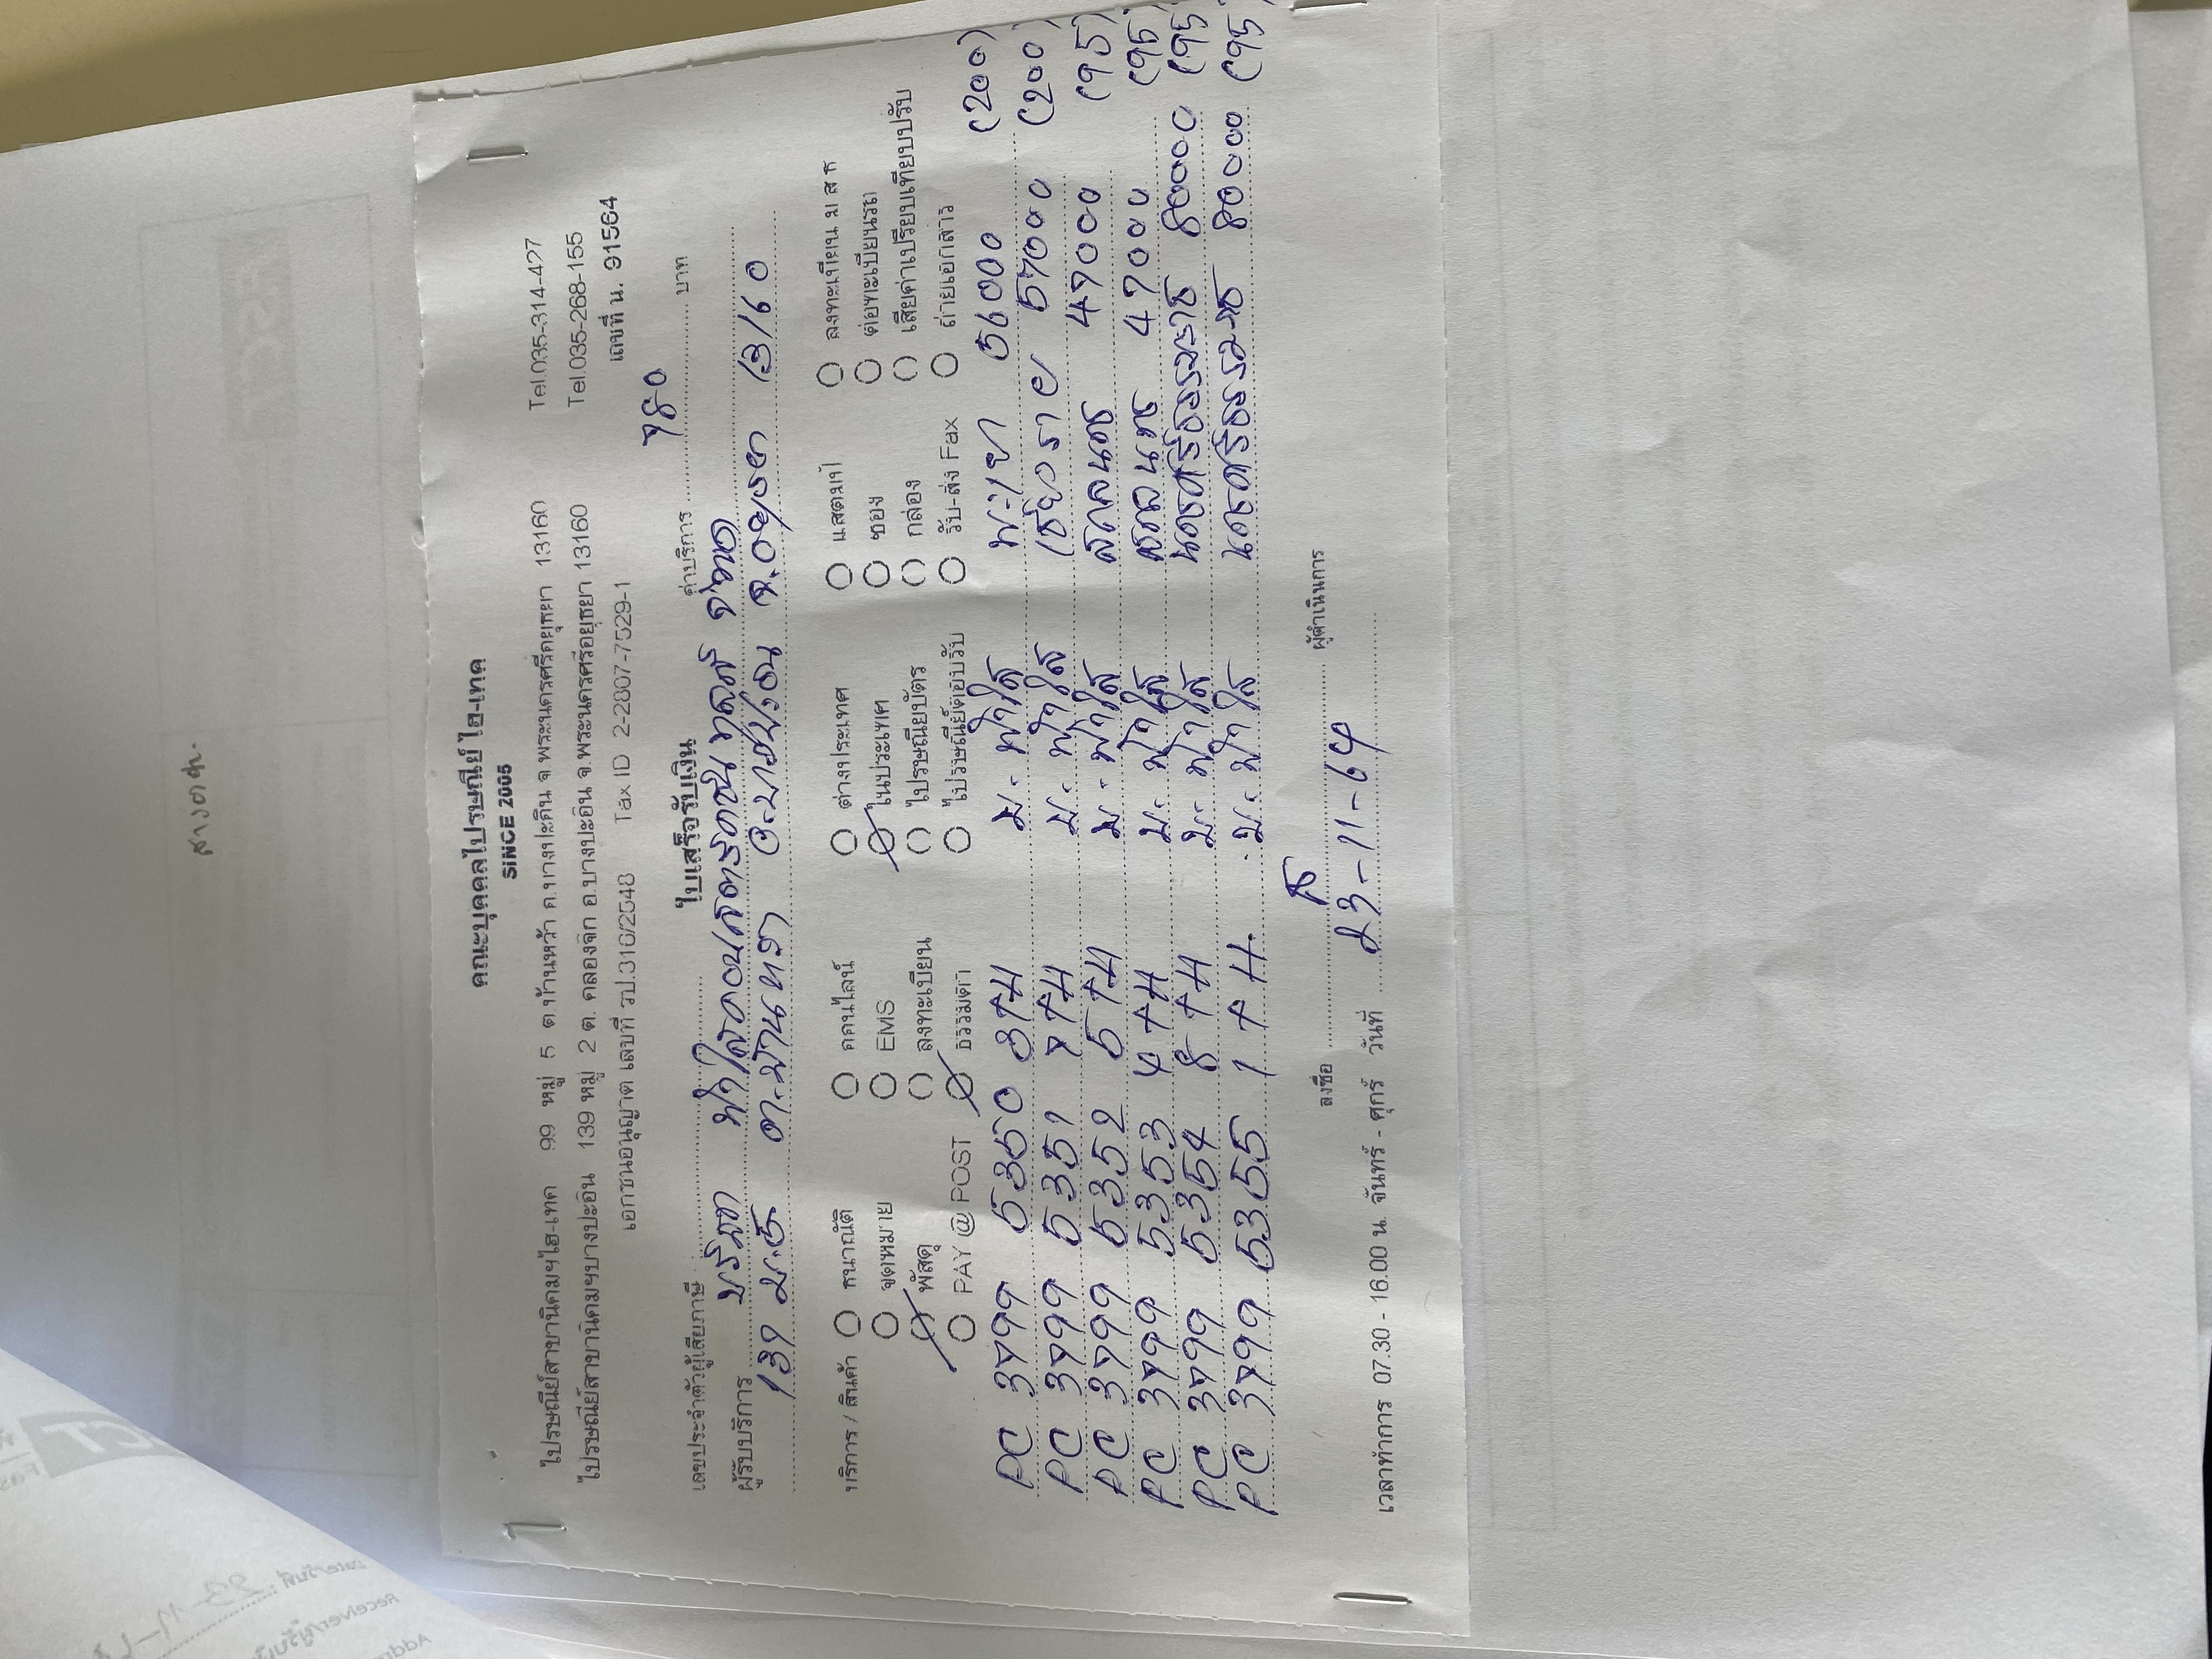 สางตช.
คณะบุคคลไปรษณีย์ ไฮ-เทค
SINCE 2005
ไปรษณีย์สาขานิคมฯไฮ-เทค 99 หมู่ 5 ต.บ้านหว้า อ.บางปะอิน จ.พระนครศรีอยุธยา 13160 Tel.035-314-427
ไปรษณีย์สาขานิคมฯบางปะอิน 139 หมู่ 2 ต. คลองจิก อ.บางปะอิน จ.พระนครศรีอยุธยา 13160 Tel.035-268-155
เอกชนอนุญาต เลขที่ รป.310/2548 Tax ID 2-2807-7529-1 เลขที่ น. 91564
เลขประจำตัวผู้เสียภาษี : ใบเสร็จรับเงิน ค่าบริการ 780 บาท
ผู้รับบริการ บริษัท ฟ้าใสคอนสตรัคชั่น ทูลส์ จำกัด
131 ม.5 ต.บ้านหว้า อ.บางปะอิน จ.อยุธยา 13160
บริการ / สินค้า ธนาณัติ ออนไลน์ ต่างประเทศ แสตมป์ ลงทะเบียน ม ส ธ
จดหมาย EMS ในประเทศ ซอง ต่อทะเบียนรถ
พัสดุ ลงทะเบียน ไปรษณียบัตร กล่อง เสียค่าเปรียบเทียบปรับ
PAY @ POST ธรรมดา ไปรษณีย์ตอบรับ รับ-ส่ง Fax ถ่ายเอกสาร
PC 3799 5350 3TH บ. ฟ้าใส พะเยา 56000 (200)
PC 3799 5351 7TH บ. ฟ้าใส เชียงราย 57000 (200)
PC 3799 5352 5TH บ. ฟ้าใส สกลนคร 47000 (95)
PC 3799 5353 4TH บ. ฟ้าใส สกลนคร 47000 (95)
PC 3799 5354 8TH บ. ฟ้าใส นครศรีธรรมราช 80000 (95
PC 3799 5355 1TH. บ. ฟ้าใส นครศรีธรรมราช 80000 (95
ลงชื่อ ผู้ดำเนินการ
เวลาทำการ 07.30 - 16.00 น. จันทร์ - ศุกร์ วันที่ 23-11-64